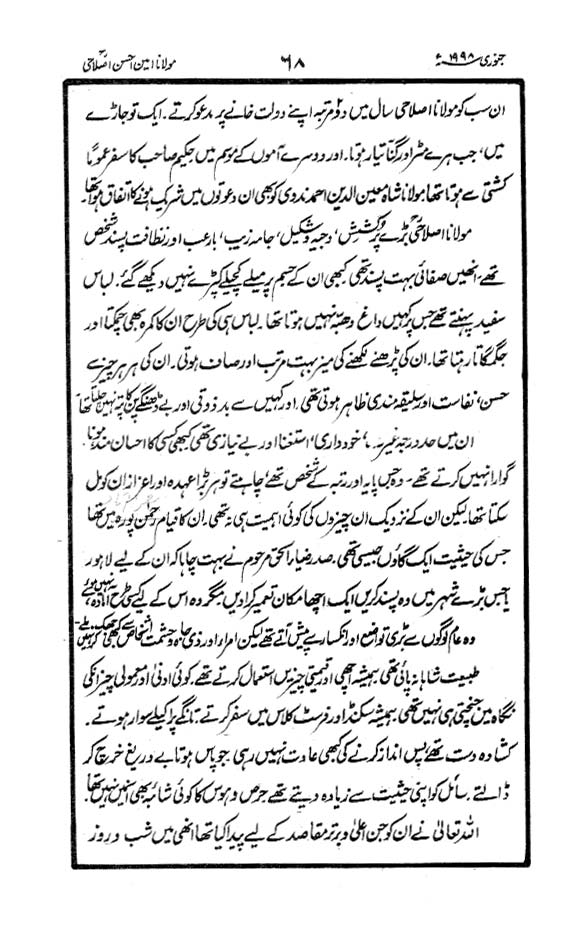 جنوری ۱۹۹۸ء ۶۸ مولانا امین احسن اصلاحیؒ
ان سب کو مولانا اصلاحی سال میں دو مرتبہ اپنے دولت خانے پر مدعو کرتے۔ ایک تو جاڑے
میں، جب ہرے مٹر اور گنا تیار ہوتا۔ اور دوسرے آموں کے موسم میں حکیم صاحب کا سفر عموماً
کشتی سے ہوتا تھا مولانا شاہ معین الدین احمد ندوی کو بھی ان دعوتوں میں شریک ہونے کا اتفاق ہوا تھا۔
مولانا اصلاحیؒ بڑے پرکشش، وجیہ و شکیل، جامہ زیب، بارعب اور نظافت پسند شخص
تھے، انھیں صفائی بہت پسند تھی کبھی ان کے جسم پر میلے کچیلے کپڑے نہیں دیکھے گئے۔ لباس
سفید پہنتے تھے جس پر کہیں داغ دھبہ نہیں ہوتا تھا۔ لباس ہی کی طرح ان کا کمرہ بھی چمکتا اور
جگمگاتا رہتا تھا۔ ان کی پڑھنے لکھنے کی میز بہت مرتب اور صاف ہوتی۔ ان کی ہر ہر چیز سے
حسن، نفاست اور سلیقہ مندی ظاہر ہوتی تھی۔ اور کہیں سے بد ذوقی اور بے ڈھنگے پن کا پتہ نہیں چلتا تھا
ان میں حد درجہ غیرت، خود داری، استغنا اور بے نیازی تھی کبھی کسی کا احسان مند ہونا
گوارا نہیں کرتے تھے۔ وہ جس پایہ اور رتبہ کے شخص تھے، چاہتے تو ہر بڑا عہدہ اور اعزاز ان کو مل
سکتا تھا لیکن ان کے نزدیک ان چیزوں کی کوئی اہمیت ہی نہ تھی۔ ان کا قیام رحمٰن پورہ میں تھا
جس کی حیثیت ایک گاؤں جیسی تھی۔ صدر ضیاء الحق مرحوم نے بہت چاہا کہ ان کے لیے لاہور
یا جس بڑے شہر میں وہ پسند کریں ایک اچھا مکان تعمیر کرا دیں، مگر وہ اس کے لیے کسی طرح آمادہ نہیں ہوئے
وہ عام لوگوں سے بڑی تواضع اور انکسار سے پیش آتے تھے لیکن امراء اور ذی جاہ و حشمت اشخاص سے کبھی
طبیعت شاہانہ پائی تھی ہمیشہ اچھی اور قیمتی چیزیں استعمال کرتے تھے۔ کوئی ادنیٰ اور معمولی چیز ان کی
نگاہ میں جچتی ہی نہیں تھی۔ ہمیشہ سکنڈ اور فرسٹ کلاس میں سفر کرتے، تانگے پر اکیلے سوار ہوتے۔
کشادہ دست تھے، پس انداز کرنے کی کبھی عادت نہیں رہی۔ جو پاس ہوتا بے دریغ خرچ کر
ڈالتے۔ سائل کو اپنی حیثیت سے زیادہ دیتے تھے حرص و ہوس کا کوئی شائبہ بھی ان میں نہیں تھا۔
اللہ تعالیٰ نے ان کو جن اعلیٰ و برتر مقاصد کے لیے پیدا کیا تھا انھی میں شب و روز